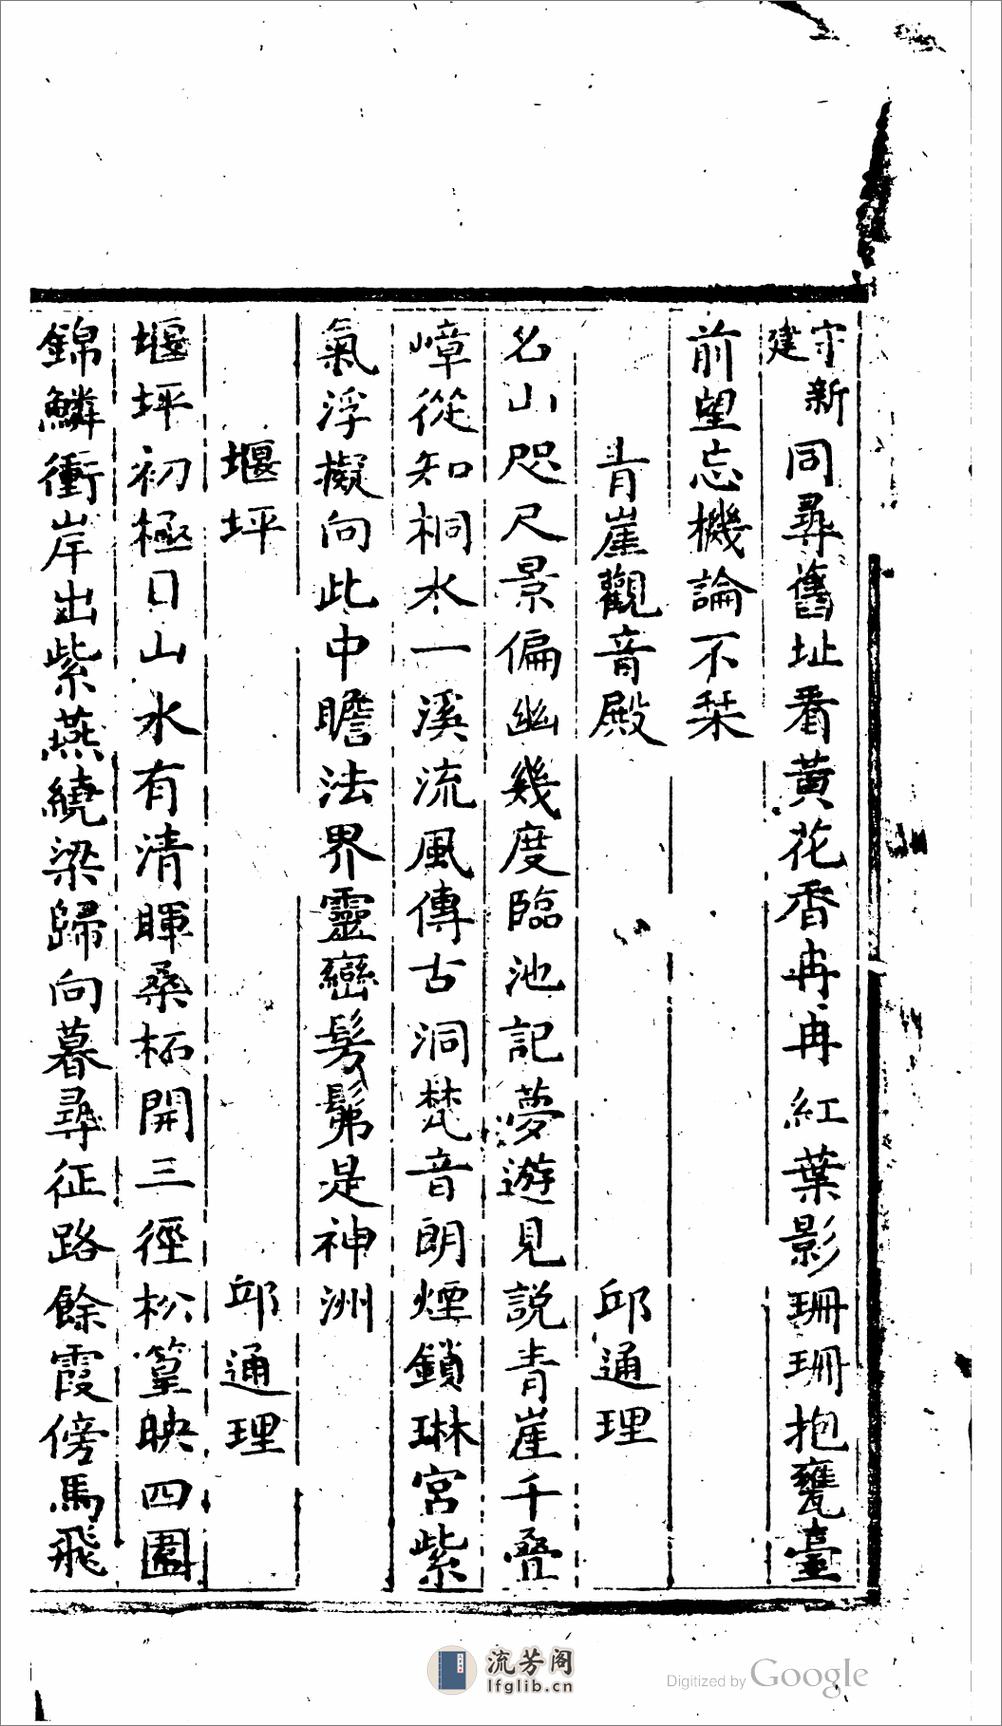 守新建同尋舊址看黃花香冉冉紅葉影珊珊抱甕臺
前望忘機論不琹
青崖觀音殿　邱通理
名山咫尺景偏幽幾度臨池記夢遊見說青崖千疊
嶂從知桐水一溪流風傳古洞梵音朗煙鎖琳宮紫
氣浮擬向此中瞻法界靈巒髣髴是神洲
堰坪　邱通理
堰坪初極目山水有清暉桑柘開三徑松篁映四圍
錦鱗衝岸出紫燕繞梁歸向暮尋征路餘霞傍馬飛
流芳阁
lfglib.cn
Digitized by Google